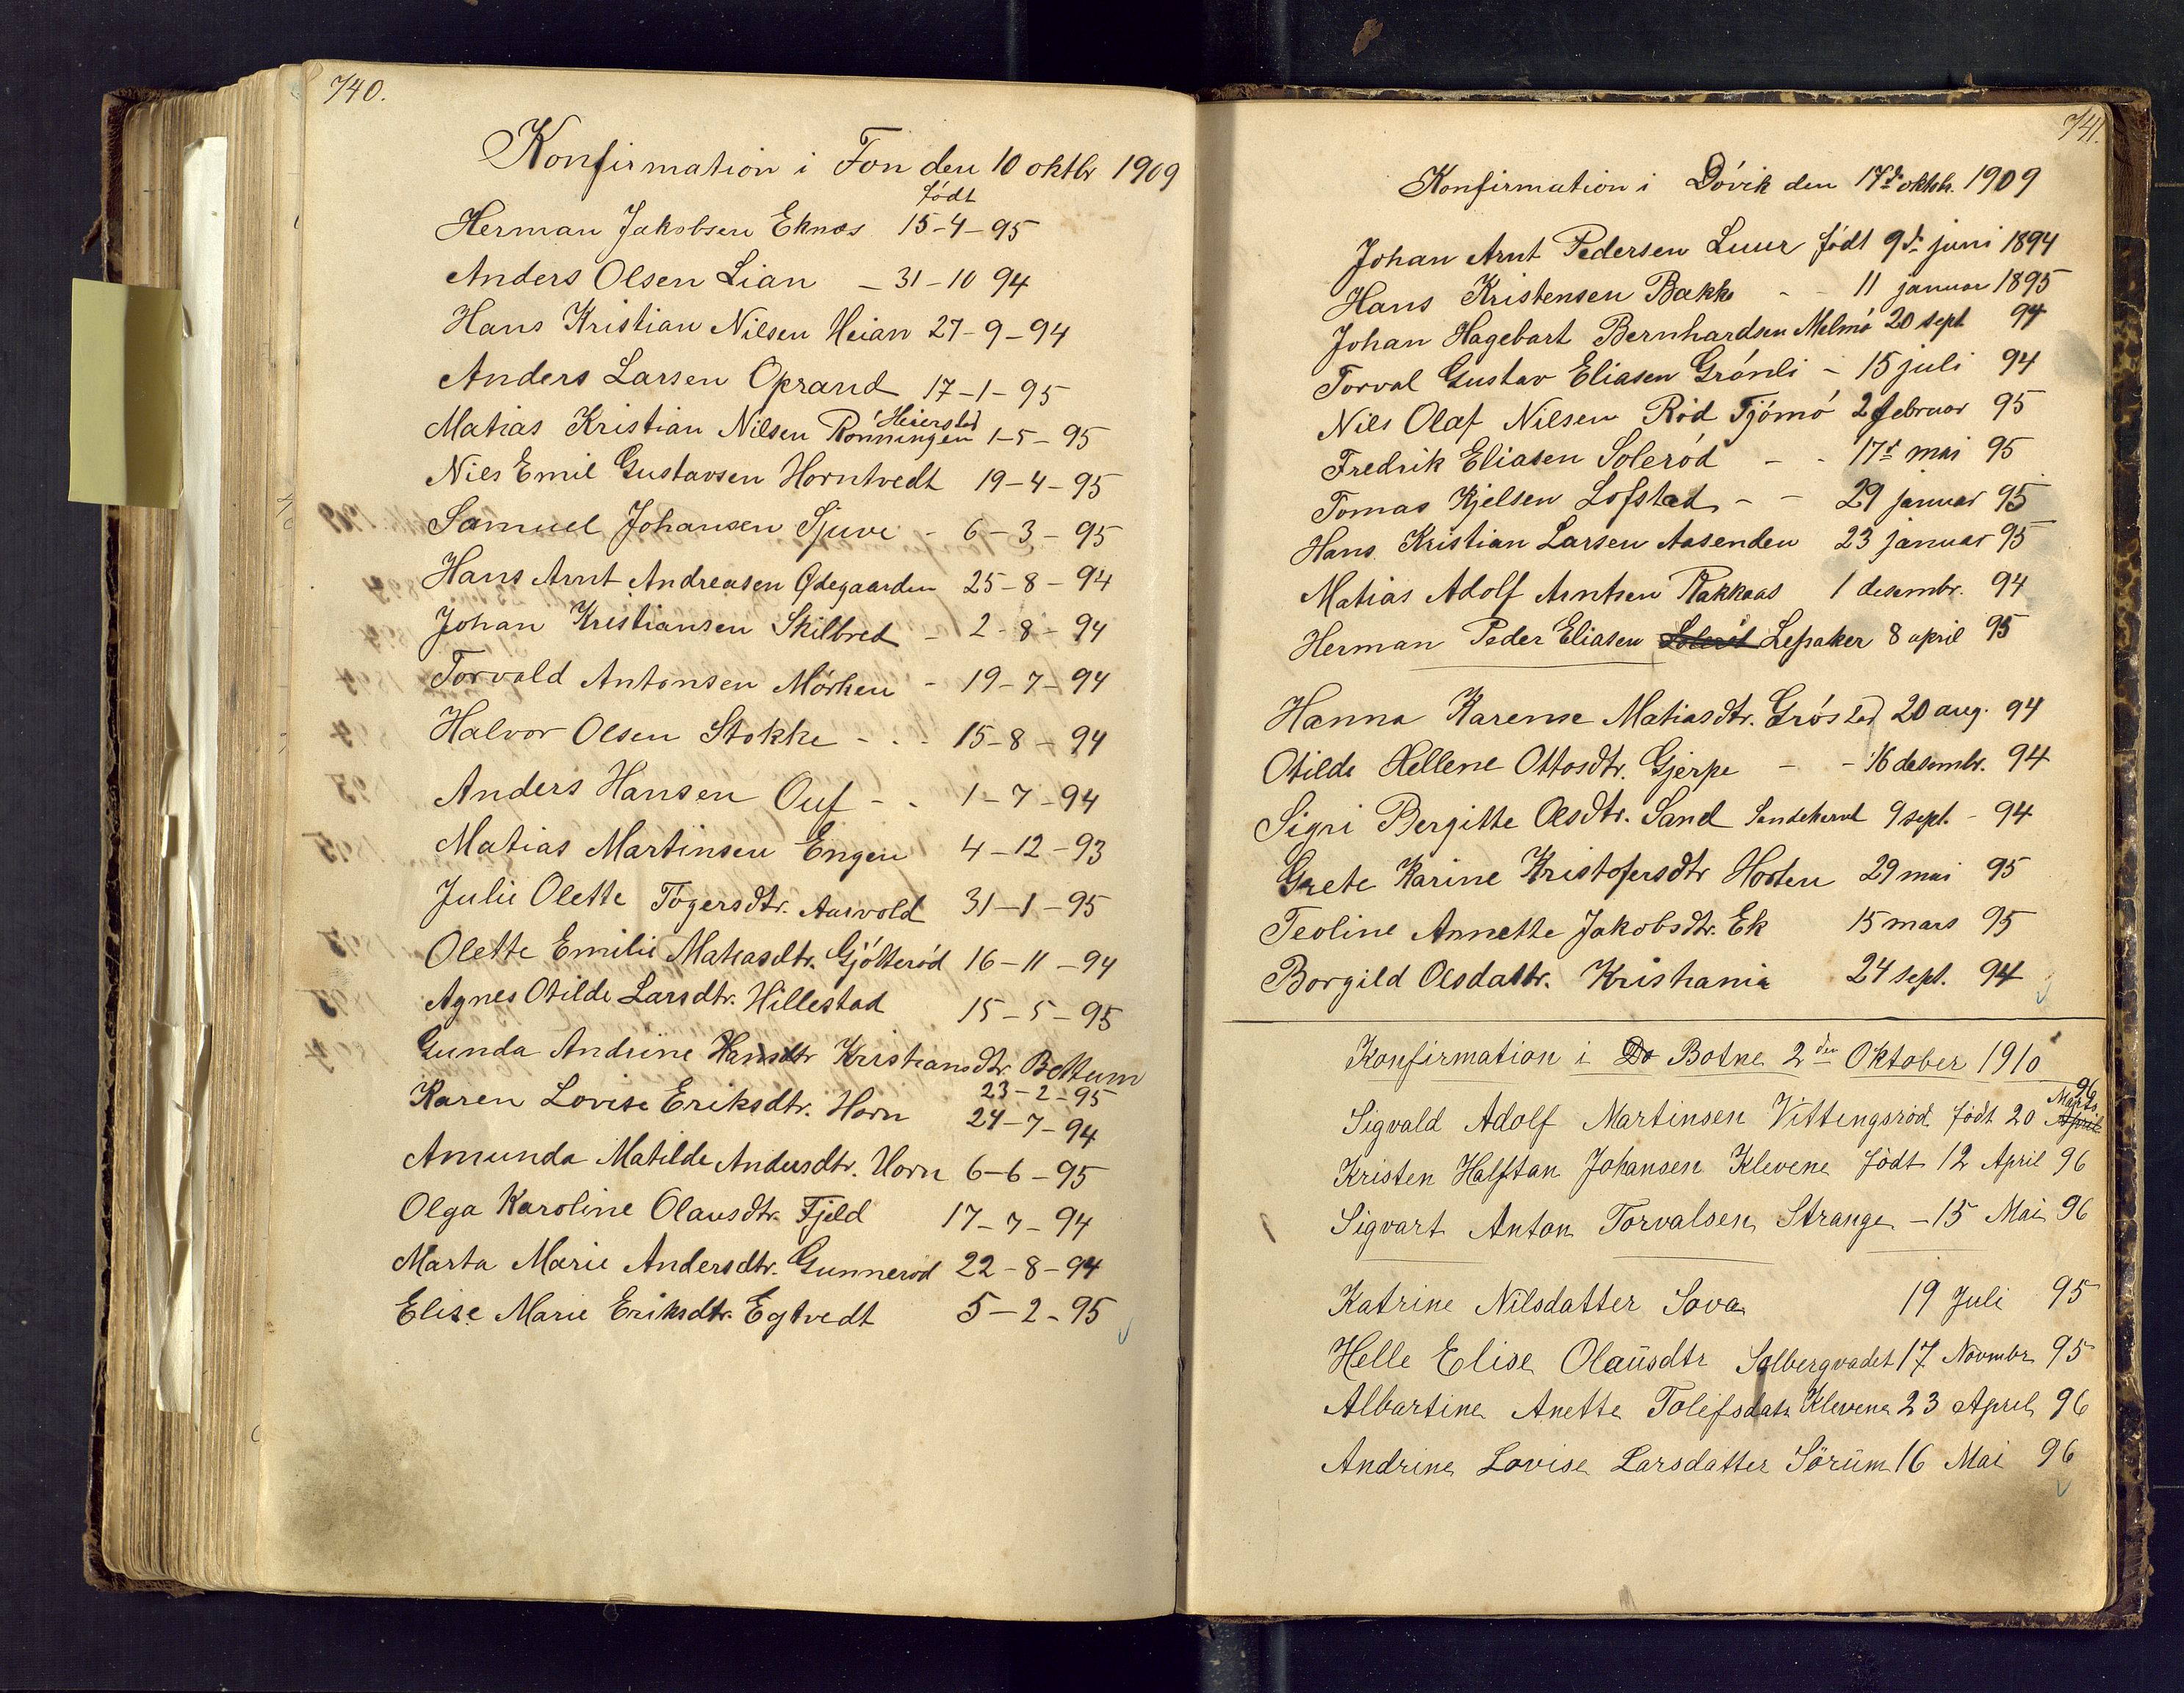 740.
Konfirmation i Fon den 10 oktbr 1909
født
Herman Jakobsen Eknes 15-4-95
Anders Olsen Lian - 31-10 94
Hans Kristian Nilsen Heian 27-9-94
Anders Larsen Oprand 17-1-95
Heierstad
Matias Kristian Nilsen Rønningen 1-5-95
Niels Emil Gustavsen Horntvedt 19-4-95
Samuel Johansen Sjuve - 6-3-95
Hans Arnt Andreasen Ødegaarden 25-8-94
Johan Kristiansen Skilbred - 2-8-94
Torvald Antonsen Mørken - 19-7-94
Halvor Olsen Stokke - - - 15-8-94
Anders Hansen Ouf - - 1-7-94
Matias Martinsen Engen 4-12-93
Julie Olette Togersdtr. Aasvold 31-1-95
Olette Emilie Matiasdtr. Gjøtterød 16-11-94
Agnes Otilde Larsdtr. Hillestad 15-5-95
Gunda Andrine Hansdtr Kristiansdtr. Bettum
23-2-95
Karen Lovise Eriksdtr. Horn 24-7-94
Amunda Matilde Andersdtr. Horn 6-6-95
Olga Karoline Olausdtr. Fjeld 17-7-94
Marta Marie Andersdtr. Gunnerød 22-8-94
Elise Marie Eriksdtr. Egtvedt 5-2-95
741.
Konfirmation i Døvik den 17de oktbr. 1909
Johan Arnt Pedersen Luur født 9de juni 1894
Hans Kristensen Bakke - - 11 januar 1895
Johan Hagebart Bernhardsen Melmø 20 sept 94
Torval Gustav Eliasen Grønli - 15 juli 94
Nils Olaf Nilsen Rød Tjømø 2 februar 95
Fredrik Eliasen Solerød - - 17de mai 95
Tomas Kjelsen Lofstad - - 29 januar 95
Hans Kristian Larsen Aasenden 23 januar 95
Matias Adolf Arntsen Rakkaas 1 desembr. 94
Herman Peder Eliasen Solerød Lepsaker 8 april 95
Hanna Karense Matiasdtr. Grøstad 20 aug. 94
Otilde Hellene Ottosdtr. Gjerpe - - 16 desembr. 94
Sigri Bergitte Olsdtr. Sand Sandeherred 9 sept. - 94
Grete Karine Kristofersdtr Horten 29 mai 95
Teoline Annette Jakobsdtr. Ek 15 mars 95
Borgild Olsdattr. Kristiania 24 sept. 94
Konfirmation i Do Botne 2den Oktober 1910
96
Marts
Sigvald Adolf Martinsen Vittengsrød født 20 April
Kristen Halftan Johansen Klevene født 12 April 96
Sigvart Anton Torvalsen Strange - 15 Mai 96
Katrine Nilsdatter Sova 19 Juli 95
Helle Elise Olausdtr Solbergvadet 17 Novmbr 95
Albartine Anette Tolefsdatr Klevene 23 April 96
Andrine Lovise Larsdatter Sørum 16 Mai 96